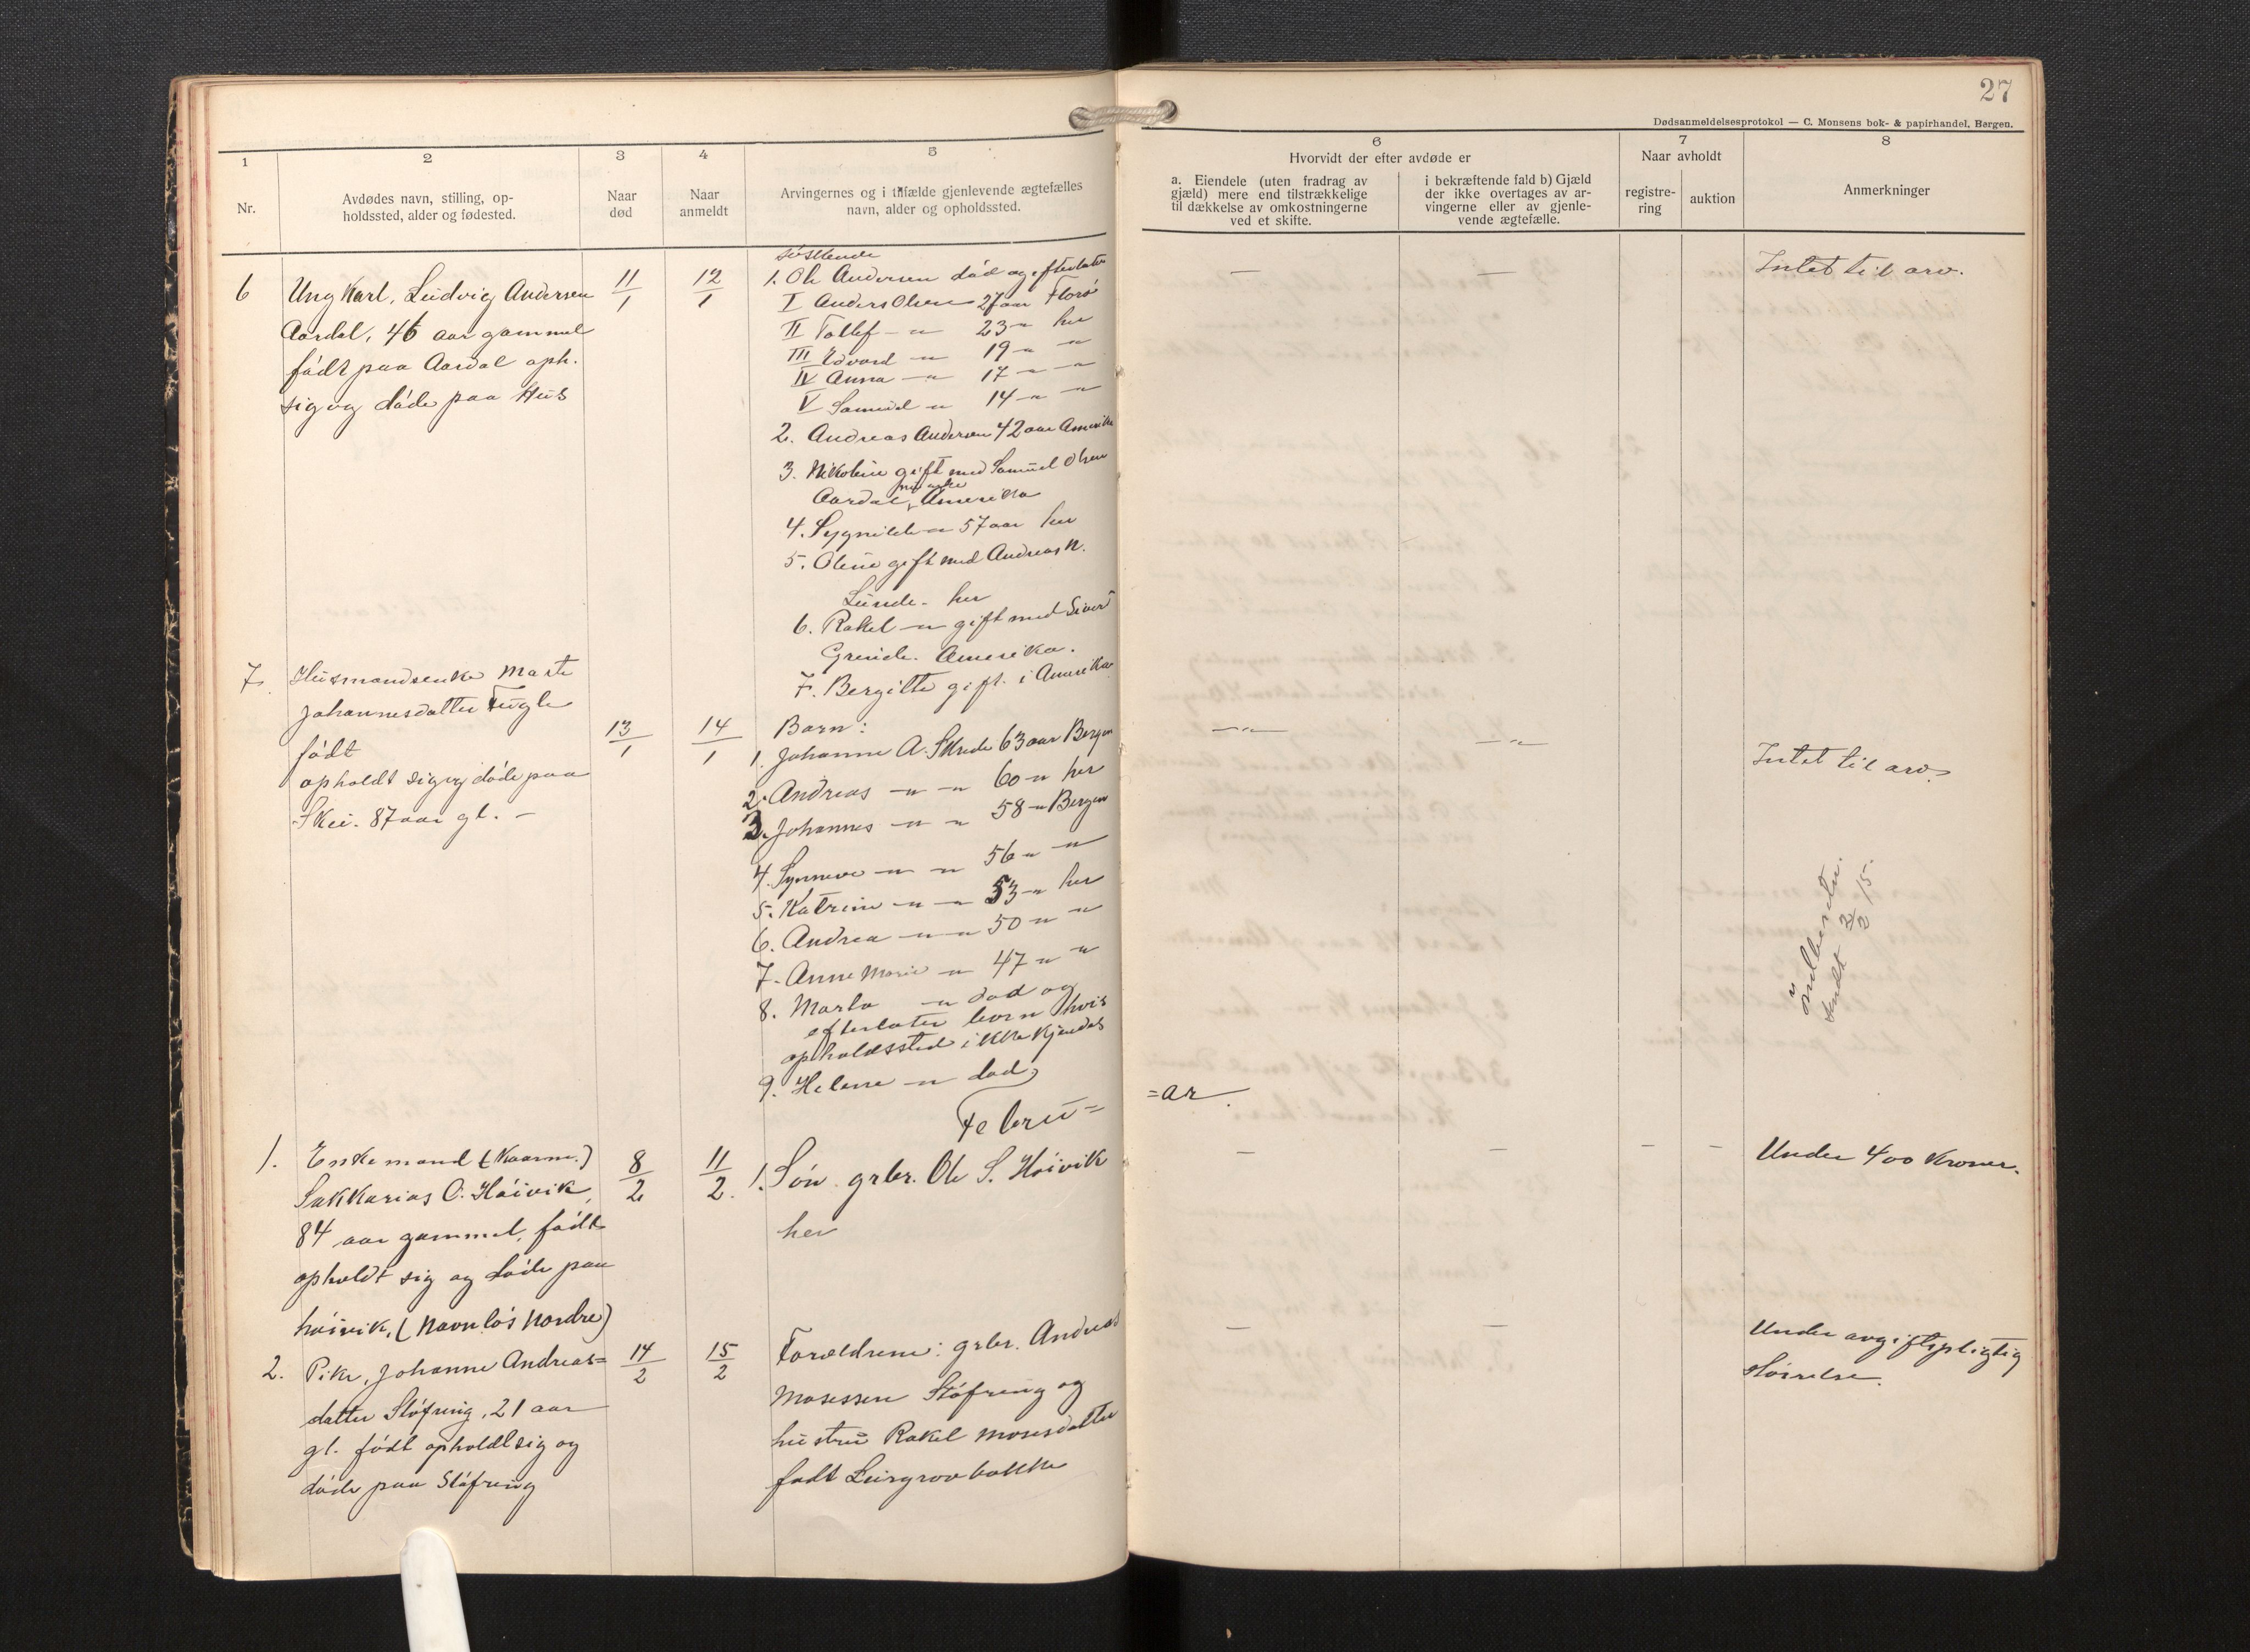 27
Dødsanmeldelsesprotokol — C. Monsens bok- & papirhandel, Bergen.
1
2
3
4
5
6
7
8
Nr.
Avdødes navn, stilling, op-
holdssted, alder og fødested.
Naar
død
Naar
anmeldt
Arvingernes og i tilfælde gjenlevende ægtefælles
navn, alder og opholdssted.
Hvorvidt der efter avdøde er
a. Eiendele (uten fradrag av
gjæld) mere end tilstrækkelige
til dækkelse av omkostningerne
ved et skifte.
i bekræftende fald b) Gjæld
der ikke overtages av ar-
vingerne eller av gjenle-
vende ægtefælle.
Naar avholdt
registre-
ring
auktion
Anmerkninger
6
Ungkarl, Ludvig Andersen
Aardal, 46 aar gammel
födt paa Aardal oph.
sig og döde paa Hus
11/1
12/1
söskende
1. Ole Andersen död og efterlater
I Anders Olsen 27 aar Florö
II Tollef – " 23 – " her
III Edvard – " 19 – " – "
IV Anna – " 17 – " – "
V Samuel – " 14 – " – "
2. Andreas Andersen 42 aar Amerika
3. Nikoline gift med Samuel Olsen
Aardal, Amerika
4. Sygnilde – " 57 aar her
5. Oline gift med Andreas N.
Lunde – her
6. Rakel – " gift med Sivert
Grinde. Amerika.
7. Bergitte gift i Amerika
— —
Intet til arv.
7.
Husmandsenke Marte
Johannesdatter Fugle
födt
opholdt sig og döde paa
Skei. 87 aar gl. –
13/1
14/1
Barn:
1. Johanne A. Skrede 63 aar Bergen
2. Andreas – " – " 60 – " her
3. Johannes – " – " 58 – " Bergen
4. Synneve – " – " 56 – " – "
5. Katrine – " – " 53 – " her
6. Andrea – " – " 50 – " – "
7. Anne Marie – " 47 – " – "
8. Marta – " död og
efterlater barn hvis
opholdssted ikke kjendes
9. Helene – " död
– " – – "
Intet til arv.
Indberetn.
sendt 3/2 15.
Febru=
=ar.
1.
Enkemand (Kaarm.)
Sakkarias O. Höivik,
84 aar gammel, födt
opholdt sig og döde paa
höivik, (Navnlös Nordre)
8/2
11/2.
1. Sön grbr. Ole S. Höivik
her
— — — —
Under 400 Kroner.
2.
Pike, Johanne Andreas=
datter Stöfring, 21 aar
gl. födt opholdt sig og
döde paa Stöfring
14/2
15/2
Forældrene: grbr. Andreas
Mosessen Stöfring og
hustru Rakel Mosesdatter
födt Leirgrovbakke
— —
Under avgiftspligtig
störrelse.